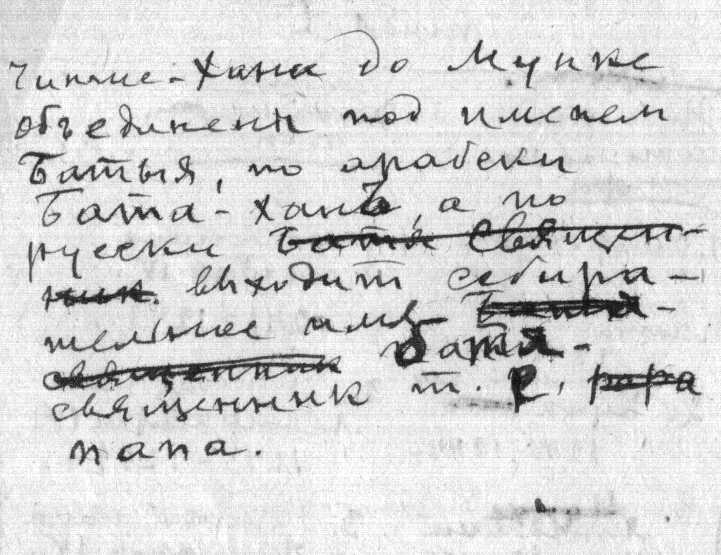 Чингис-Хана до Мункс
объединены под именем
Батыя, по арабски
Бата-ханъ, а по
русски Батя священ-
ник. выходит собира-
тельное имя Батя-
священник Батя-
священник т. е. papa
папа.